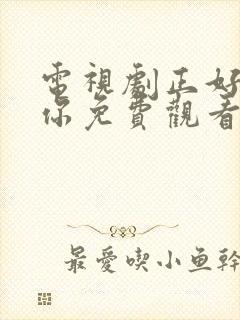 電視劇正好
你免費觀看
最愛喫小魚幹